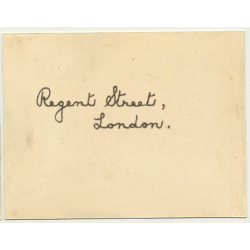 Regent Street,
London.